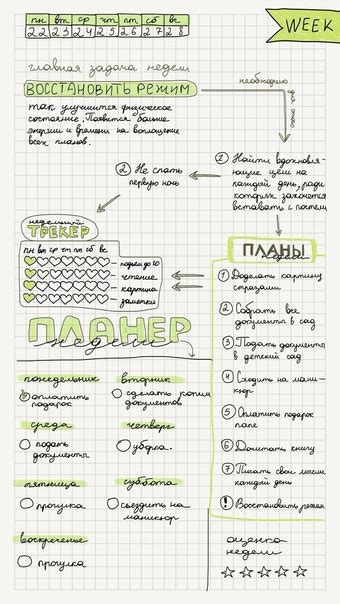 WEEK
пн вт ср чт пт сб вс
22 23 24 25 26 27 28
главная задача недели
ВОССТАНОВИТЬ РЕЖИМ
необходимо
для этого
так улучшится физическое
состояние. Появится больше
энергии и времени на воплощение
всех планов.
1 Найти вдохновля-
ющие цели на
каждый день, ради
которых захочется
вставать с постели
2 Не спать
первую ночь
недельный
ТРЕКЕР
пн вт ср чт пт сб вс
подъем до 10
чтение
картина
заметки
ПЛАНЕР
недели
ПЛАНЫ
недели
1 Доделать картину
стразами
2 Собрать все
документы в сад
3 Подать документы
в детский сад
4 Сходить на мани-
кюр
5 Оплатить подарок
папе
6 Дочитать книгу
7 Писать свои мысли
каждый день
! Восстановить режим
понедельник
оплатить
подарок
вторник
сделать копии
документов
среда
подать
документы
четверг
уборка.
пятница
прогулка
суббота
съездить на
маникюр
воскресенье
прогулка
оценка
недели